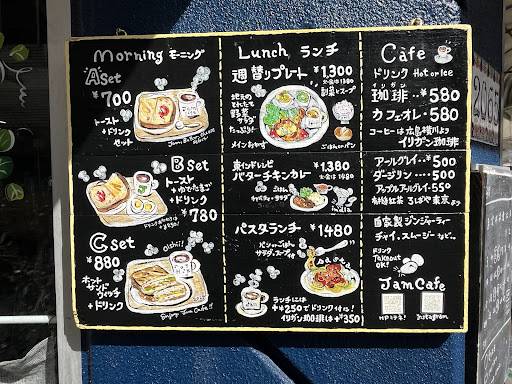 Morning モーニング
A set
¥700
トースト
+ドリンク
セット
B set
トースト
+ゆでたまご
+ドリンク
¥780
C set
¥880
Oishii!
ホット
サンド
ウィッチ
+ドリンク
Enjoy Jam Cafe!!
Lunch ランチ
週替りプレート ¥1,300
副菜とスープ
地元の
とれたて
野菜
サラダ
たっぷり!
メインおかず
ごはんorパン
東インドレシピ ¥1,380
バターチキンカレー
India
パスタランチ ¥1480
パンorごはん
サラダ、スープ付
ランチには
+¥250でドリンク付!
イリガン珈琲は+¥350
Cafe
ドリンク Hot or Ice
イリガン
珈琲‥¥580
カフェオレ‥580
コーヒーは広島横川より
イリガン珈琲
アールグレイ‥¥500
ダージリン‥500
アップルアールグレイ‥550
自家製ジンジャーティー
チャイ、スムージーなど
ドリンク
Takeout
OK!
Jam Cafe
HPはコチラ!
Instagram
2065